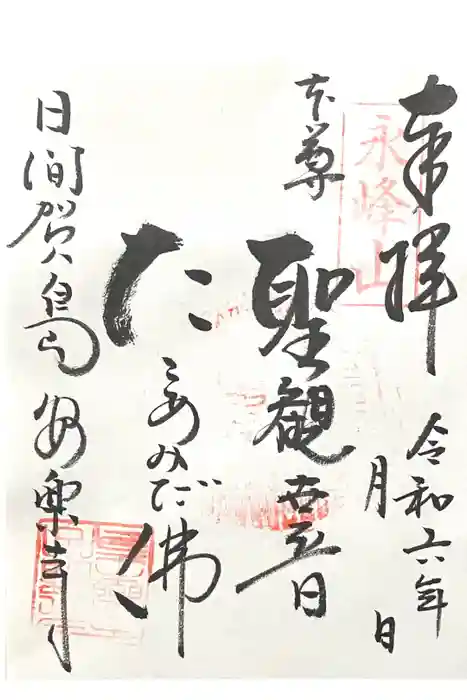 奉拝
令和六年
月　日
永峰山
本尊
聖観音
たこあみだ佛
日間賀島 安楽寺